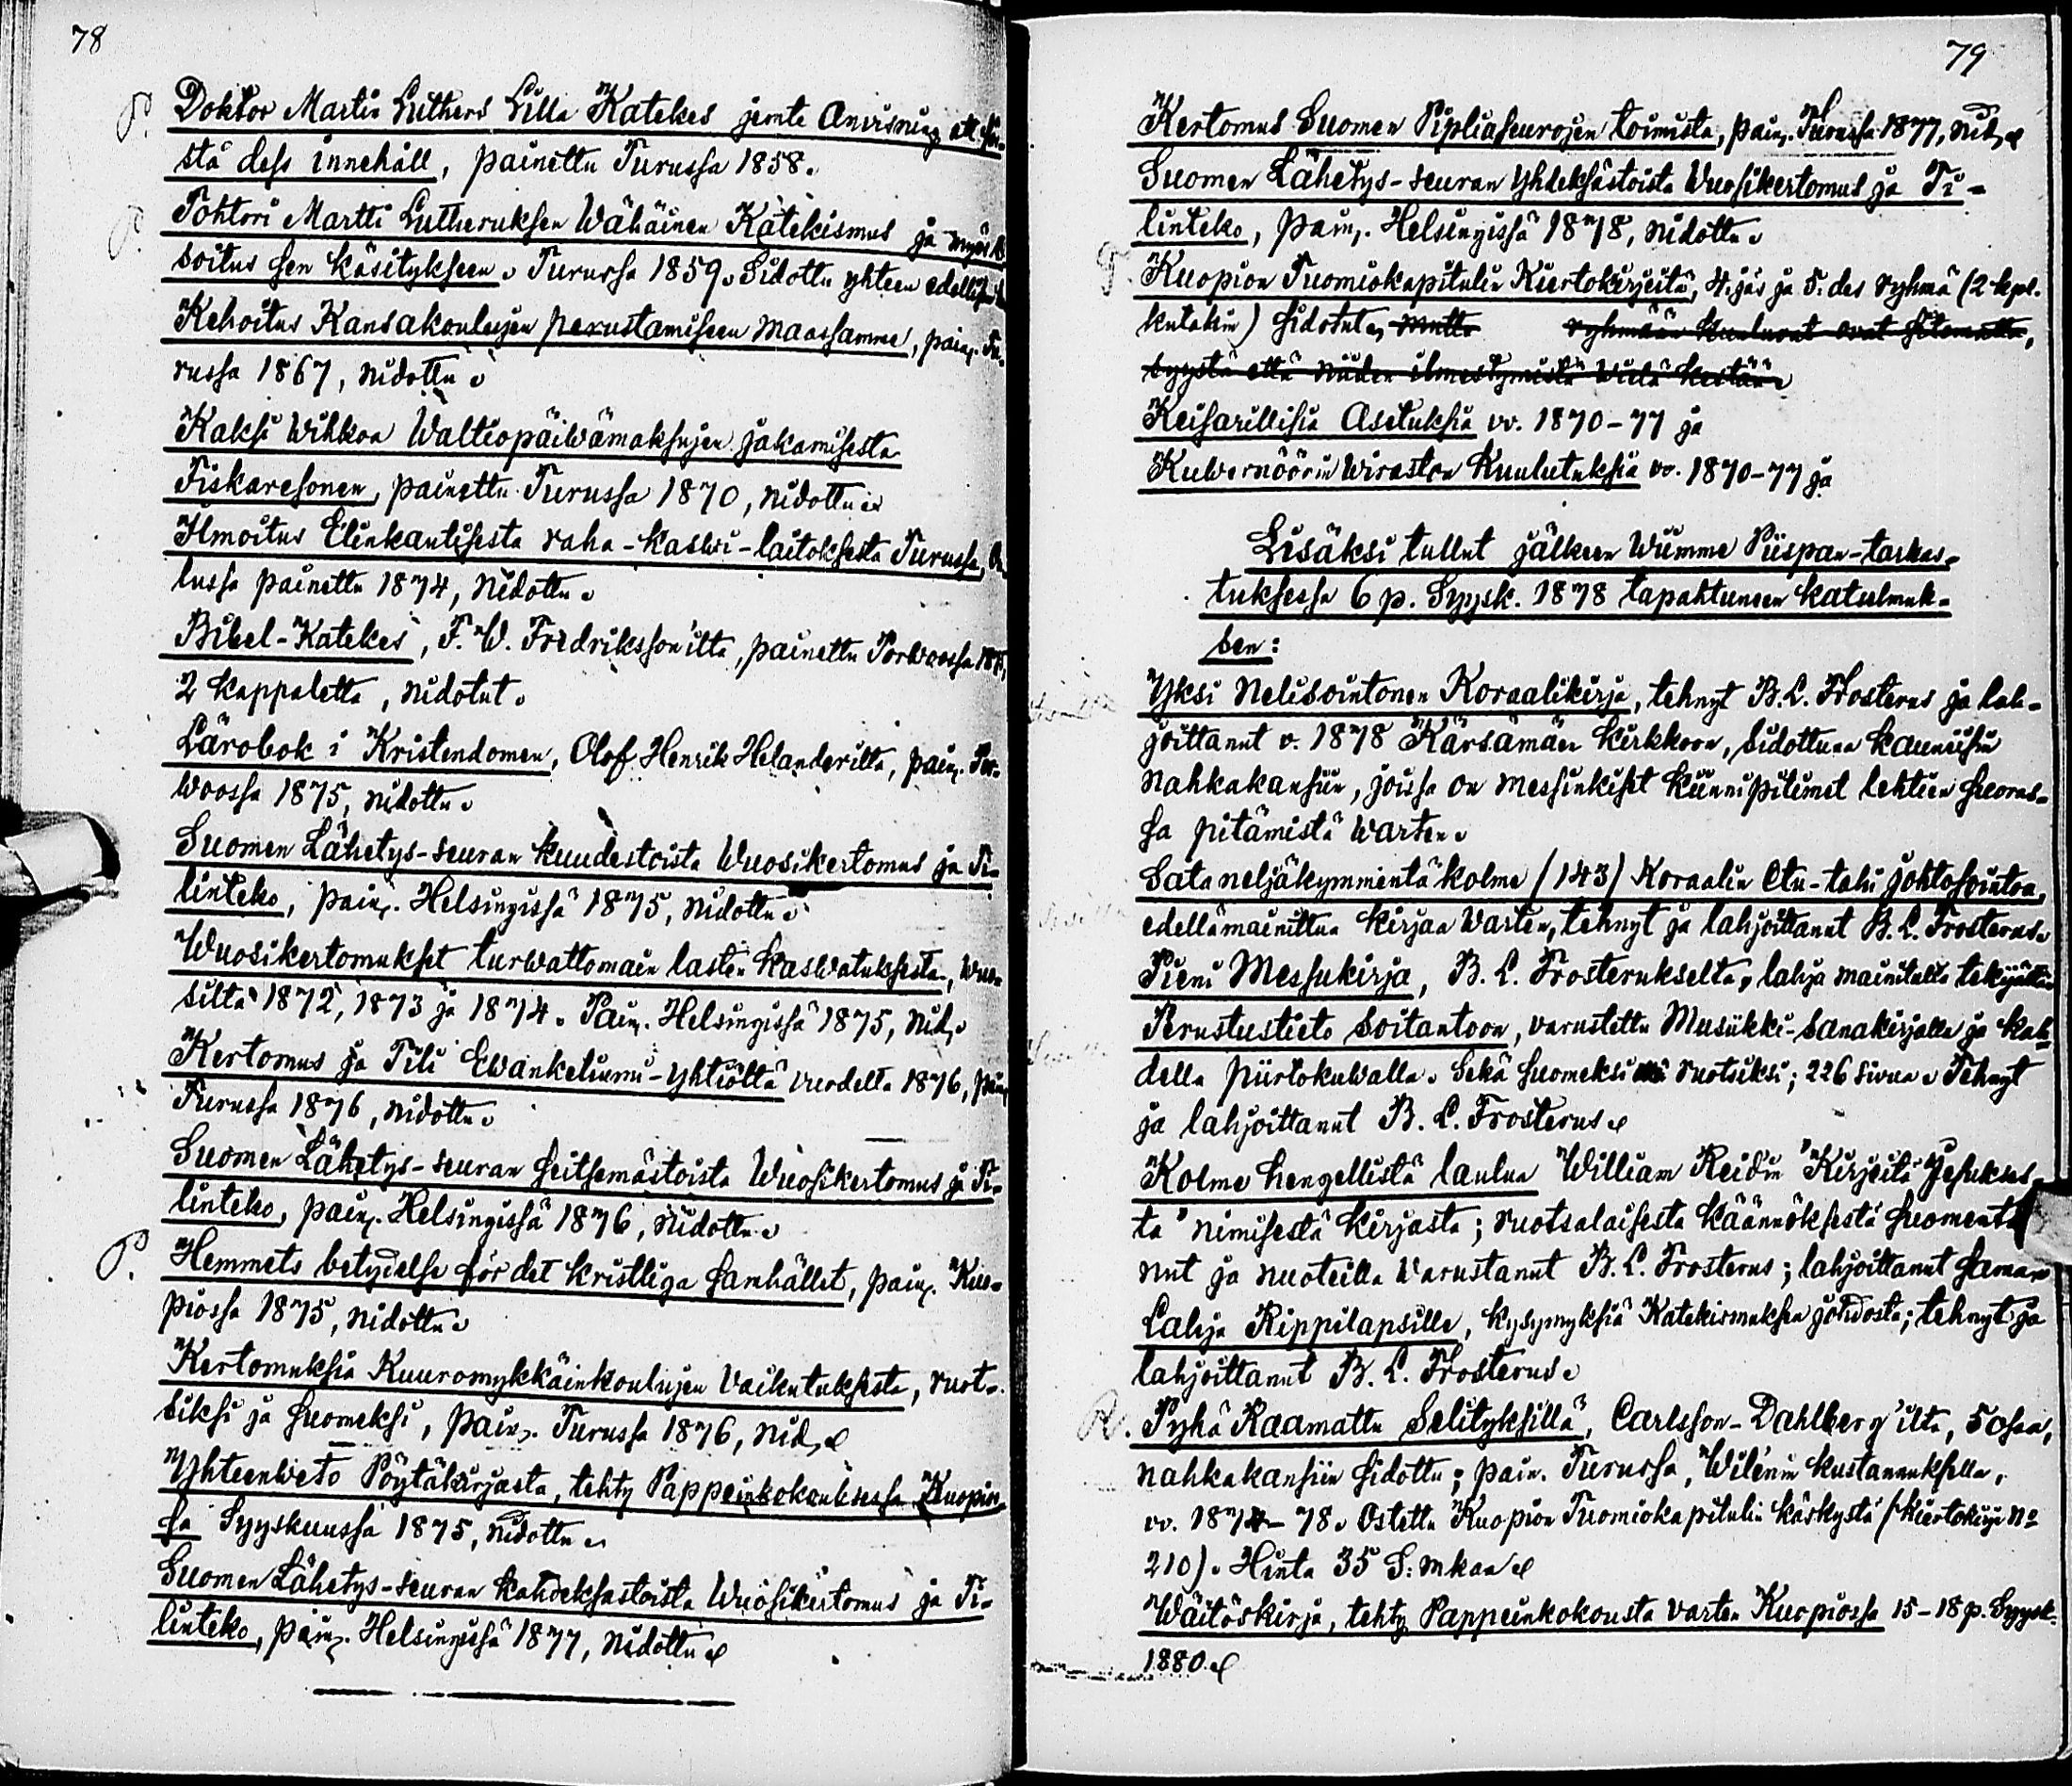 78
P. Doktor Martin Luthers Lilla Katekes jemte Anvisning att för-
stå dess innehåll, painettu Turussa 1858.
P. Tohtori Martti Lutheruksen Wähäinen Katekismus ja myös
soitus sen käsitykseen. Turussa 1859. Sidottu yhteen
Kehoitus Kansakoulujen perustamiseen Maassamme, pain. Tu-
russa 1867, nidottu.
Kaksi Wihkoa Waltiopäiwämaksujen jakamisesta
Fiskaresonen, painettu Turussa 1870, nidottu.
Ilmoitus Elinkautisesta raha-kaswi-laitoksesta Turussa, Ou-
lussa painettu 1874, Nidottu.
Bibel-Katekes, F. W. Fredriksson'ilta, painettu Porwoossa
2 kappaletta, nidotut.
Lärobok i Kristendomen, Olof Henrik Helanderilta, pain. Por-
woossa 1875, nidottu.
Suomen Lähetys-seuran kuudestoista Wuosikertomus ja Ti-
linteko, pain. Helsingissä 1875, nidottu.
Wuosikertomukset turwattomain lasten kaswatuksesta, Wuo-
silta 1872, 1873 ja 1874. Pain. Helsingissä 1875, Nid.
Kertomus ja Tili Ewankeliumi-yhtiöltä vuodelta 1876, pain.
Turussa 1876, nidottu.
Suomen Lähetys-seuran seitsemästoista Wuosikertomus ja Ti-
linteko, pain. Helsingissä 1876, nidottu.
P. Hemmets betydelse för det kristliga samhället, pain. Kuo-
piossa 1875, nidottu.
Kertomuksia Kuuromykkäinkoulujen Vaikutuksesta, ruot-
siksi ja suomeksi, pain. Turussa 1876, nid.
Yhteenweto Pöytäkirjasta, tehty Pappeinkokouksessa Kuopios-
sa Syyskuussa 1875, nidottu.
Suomen Lähetys-seuran kahdeksastoista Wuosikertomus ja Ti-
linteko, pain. Helsingissä 1877, nidottu.
79
Kertomus Suomen Pipliaseurojen toimista, pain. Turussa 1877, nid.
Suomen Lähetys-seuran Yhdeksästoista Wuosikertomus ja Ti-
linteko, pain. Helsingissä 1878, nidottu.
Kuopion Tuomiokapitulin Kiertokirjeitä, 4:jäs ja 5:des ryhmä (2 kpl.
kutakin) sidotut, mutta ryhmään kuuluvat ovat sitomatta,
syystä että niiden ilmestymistä wielä kestää.
Keisarillisia Asetuksia vv. 1870-77 ja
Kuwernöörin Wiraston Kuulutuksia vv. 1870-77 ja
Lisäksi tullut jälkeen Wiimme Piispan-tarkas-
tuksessa 6 p. Syysk. 1878 tapahtuneen katselmuk-
sen:
Yksi Nelisointonen Koraalikirja, tehnyt B. L. Frosterus ja lah-
joittanut v. 1878 Kärsämäen kirkkoon, sidottuna kauniisiin
nahkakansiin, joissa on messinkiset kiinnipitimet lehtien suoras-
sa pitämistä warten.
Sata neljäkymmentä kolme (143) Koraalin Etu- tahi johtosointoa,
edellämainittua kirjaa warten, tehnyt ja lahjoittanut B. L. Frosterus.
Pieni Messukirja, B. L. Frosterukselta, lahja mainitulta tekijältä.
Perustustieto soitantoon, varustettu Musiikki-sanakirjalla ja kah-
della piirtokuwalla. Sekä suomeksi ruotsiksi; 226 sivua. Tehnyt
ja lahjoittanut B. L. Frosterus.
Kolme hengellistä laulua William Reid'in "Kirjeitä Jesukses-
ta" nimisestä kirjasta; ruotsalaisesta käännöksestä suomenta-
nut ja nuoteilla Varustanut B. L. Frosterus; lahjoittanut saman
Lahja Rippilapsille, kysymyksiä Katekismuksen johdosta; tehnyt ja
lahjoittanut B. L. Frosterus.
R. Pyhä Raamattu Selityksillä, Carlsson-Dahlberg'ilta, 5 osaa,
nahkakansiin sidottu; pain. Turussa, Wilén'in kustannuksella,
vv. 1874-78. Ostettu Kuopion Tuomiokapitulin käskystä (Kiertokirje No
210). Hinta 35 S:mkaa.
Wäitöskirja, tehty Pappeinkokousta varten Kuopiossa 15-18 p. Syysk.
1880.